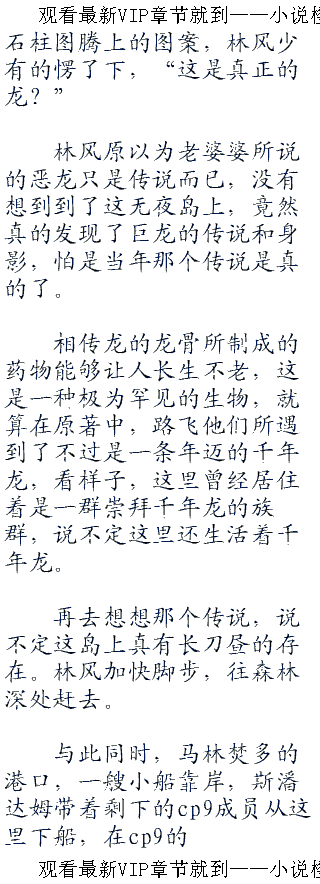 观看最新VIP章节就到——小说
石柱图腾上的图案，林风少
有的愣了下，“这是真正的
龙？”
林风原以为老婆婆所说
的恶龙只是传说而已，没有
想到到了这无夜岛上，竟然
真的发现了巨龙的传说和身
影，怕是当年那个传说是真
的了。
相传龙的龙骨所制成的
药物能够让人长生不老，这
是一种极为罕见的生物，就
算在原著中，路飞他们所遇
到了不过是一条年迈的千年
龙，看样子，这里曾经居住
着是一群崇拜千年龙的族
群，说不定这里还生活着千
年龙。
再去想想那个传说，说
不定这岛上真有长刀昼的存
在。林风加快脚步，往森林
深处赶去。
与此同时，马林焚多的
港口，一艘小船靠岸，斯潘
达姆带着剩下的cp9成员从这
里下船，在cp9的
观看最新VIP章节就到——小说